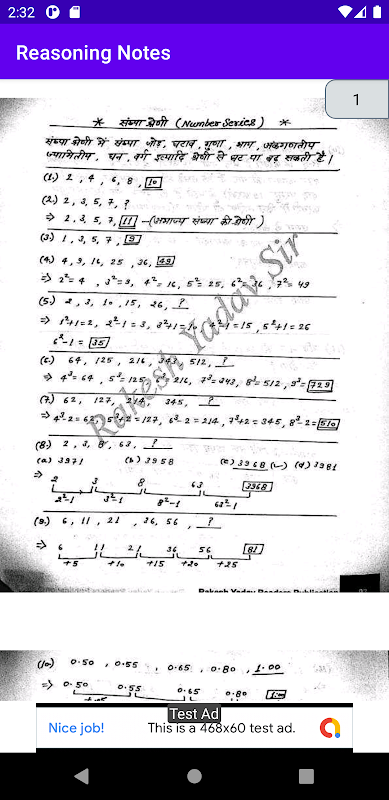 2:32
Reasoning Notes
1
* संख्या श्रेणी (Number Series) *
संख्या श्रेणी में संख्या जोड़, घटाव, गुणा, भाग, अंकगणतीय
ज्यामितीय, घन, वर्ग इत्यादि श्रेणी से घट या बढ़ सकती है।
(1.) 2, 4, 6, 8, 10
(2.) 2, 3, 5, 7, ?
⇒ 2, 3, 5, 7, 11 - (अभाज्य संख्या की श्रेणी)
(3.) 1, 3, 5, 7, 9
(4.) 4, 9, 16, 25, 36, 49
⇒ 2²= 4, 3²= 9, 4²= 16, 5²= 25, 6²= 36, 7²= 49
(5.) 2, 3, 10, 15, 26, ?
⇒ 1²+1= 2, 2²-1 = 3, 3²+1= 10, 4²-1 = 15, 5²+1 = 26
6²-1 = 35
(6.) 64, 125, 216, 343, 512, ?
⇒ 4³= 64, 5³= 125, 6³= 216, 7³= 343, 8³= 512, 9³= 729
(7.) 62, 127, 214, 345, ?
⇒ 4³-2 = 62, 5³+2 = 127, 6³-2 = 214, 7³+2 = 345, 8³-2 = 510
(8.) 2, 3, 8, 63, ?
(a) 3971 (b) 3958 (c) 3968 (d) 3981
⇒ 2 3 8 63 3968
2²-1 3²-1 8²-1 63²-1
(9.) 6, 11, 21, 36, 56, ?
⇒ 6 11 21 36 56 81
+5 +10 +15 +20 +25
Rakesh Yadav Sir
Rakesh Yadav Readers Publication
(10) 0.50, 0.55, 0.65, 0.80, 1.00
⇒ 0.50 0.55 0.65 0.80 1.00
Test Ad
Nice job! This is a 468x60 test ad.